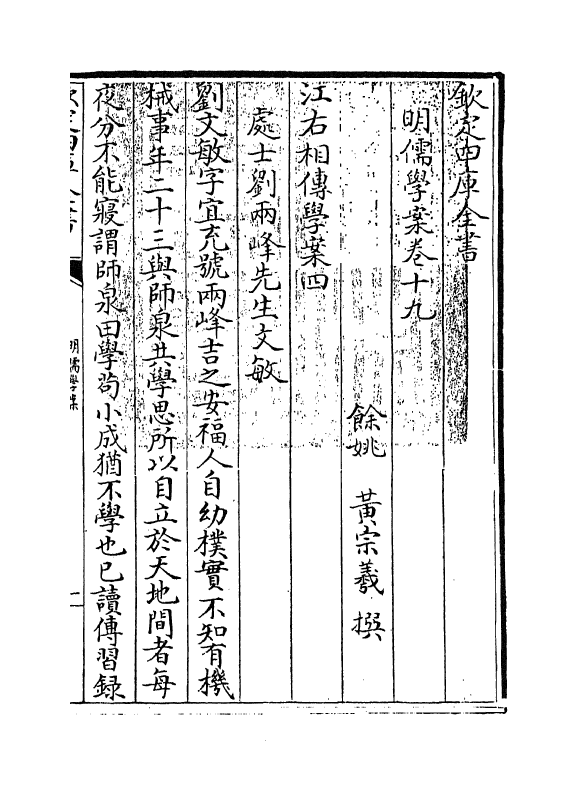 欽定四庫全書
明儒學案卷十九
餘姚　黃宗羲　撰
江右相傳學案四
處士劉兩峰先生文敏
劉文敏字宜充號兩峰吉之安福人自幼樸實不知有機
械事年二十三與師泉共學思所以自立於天地間者每
夜分不能寢謂師泉曰學茍小成猶不學也已讀傳習錄
明儒學案